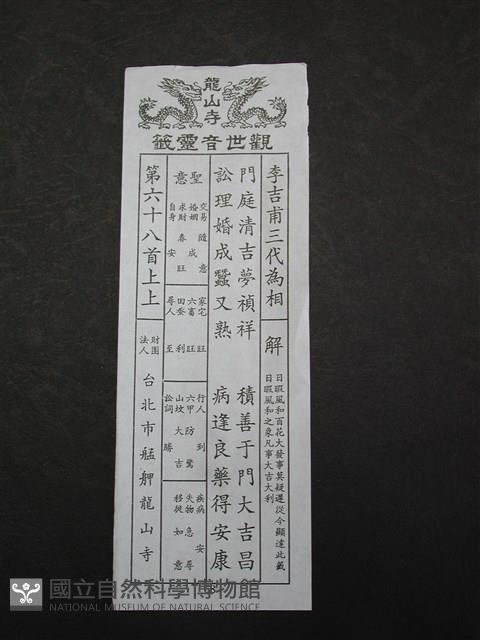 龍山寺
觀世音靈籤
李吉甫三代為相
解
日暖風和百花大發事莫疑遲從今顯達此籤
日暖風和之象凡事大吉大利
門庭清吉夢禎祥 積善于門大吉昌
訟理婚成蠶又熟 病逢良藥得安康
聖意
交易 隨意
婚姻 成
求財 泰旺
自身 安
家宅 旺
六畜 旺
田蚕 利
尋人 至
行人 到
六甲 防驚
山坟 大吉
訟詞 勝
疾病 安
失物 急尋
移徙 如意
第六十八首上上
財團法人 台北市艋舺龍山寺
國立自然科學博物館
NATIONAL MUSEUM OF NATURAL SCIENCE